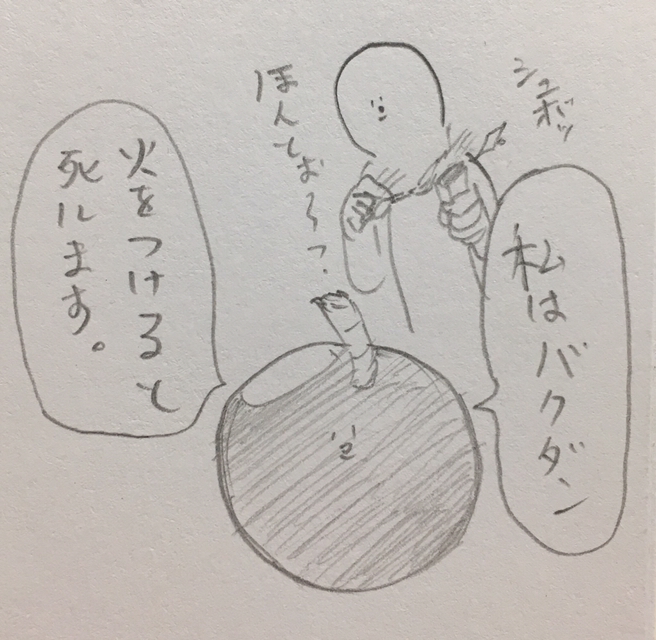 シュボッ
ほんとおろう?
私はバクダン
火をつけると
死にます。